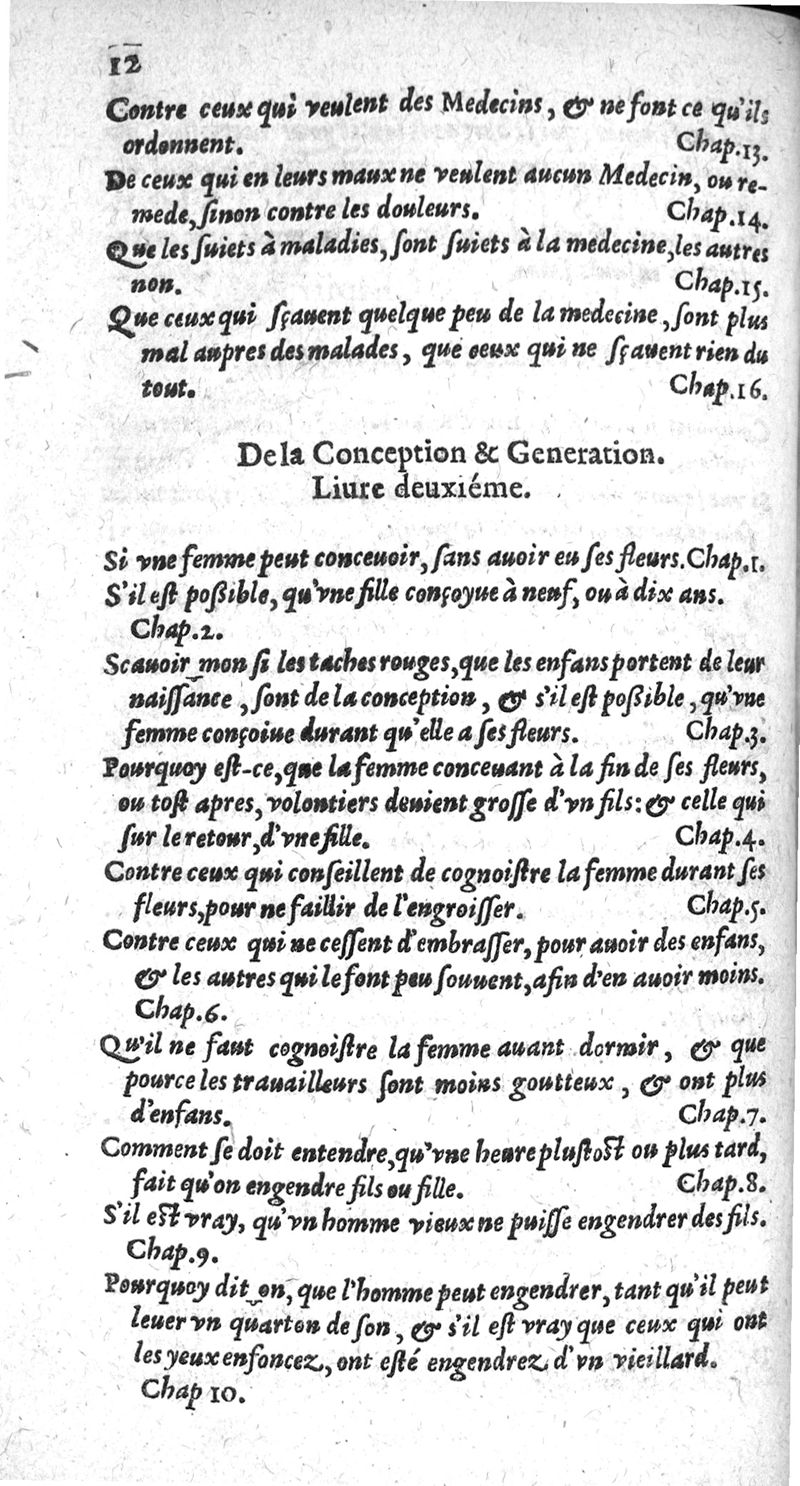 12
Contre ceux qui veulent des Medecins, & ne font ce qu'ils
ordonnent. Chap.13.
De ceux qui en leurs maux ne veulent aucun Medecin, ou re-
mede, sinon contre les douleurs. Chap.14.
Que les suiets à maladies, sont suiets à la medecine, les autres
non. Chap.15.
Que ceux qui sçauent quelque peu de la medecine, sont plus
mal aupres des malades, que ceux qui ne sçauent rien du
tout. Chap.16.
De la Conception & Generation.
Liure deuxiéme.
Si vne femme peut conceuoir, sans auoir eu ses fleurs. Chap.1.
S'il est poßible, qu'vne fille conçoyue à neuf, ou à dix ans.
Chap.2.
Scauoir mon si les taches rouges, que les enfans portent de leur
naissance, sont de la conception, & s'il est poßible, qu'vne
femme conçoiue durant qu'elle a ses fleurs. Chap.3.
Pourquoy est-ce, que la femme conceuant à la fin de ses fleurs,
ou tost apres, volontiers deuient grosse d'vn fils: & celle qui
sur le retour, d'vne fille. Chap.4.
Contre ceux qui conseillent de cognoistre la femme durant ses
fleurs, pour ne faillir de l'engroisser. Chap.5.
Contre ceux qui ne cessent d'embrasser, pour auoir des enfans,
& les autres qui le font peu souuent, afin d'en auoir moins.
Chap.6.
Qu'il ne faut cognoistre la femme auant dormir, & que
pource les trauailleurs sont moins goutteux, & ont plus
d'enfans. Chap.7.
Comment se doit entendre, qu'vne heure plustost ou plus tard,
fait qu'on engendre fils ou fille. Chap.8.
S'il est vray, qu'vn homme vieux ne puisse engendrer des fils.
Chap.9.
Pourquoy dit on, que l'homme peut engendrer, tant qu'il peut
leuer vn quarton de son, & s'il est vray que ceux qui ont
les yeux enfoncez, ont esté engendrez d'vn vieillard.
Chap 10.